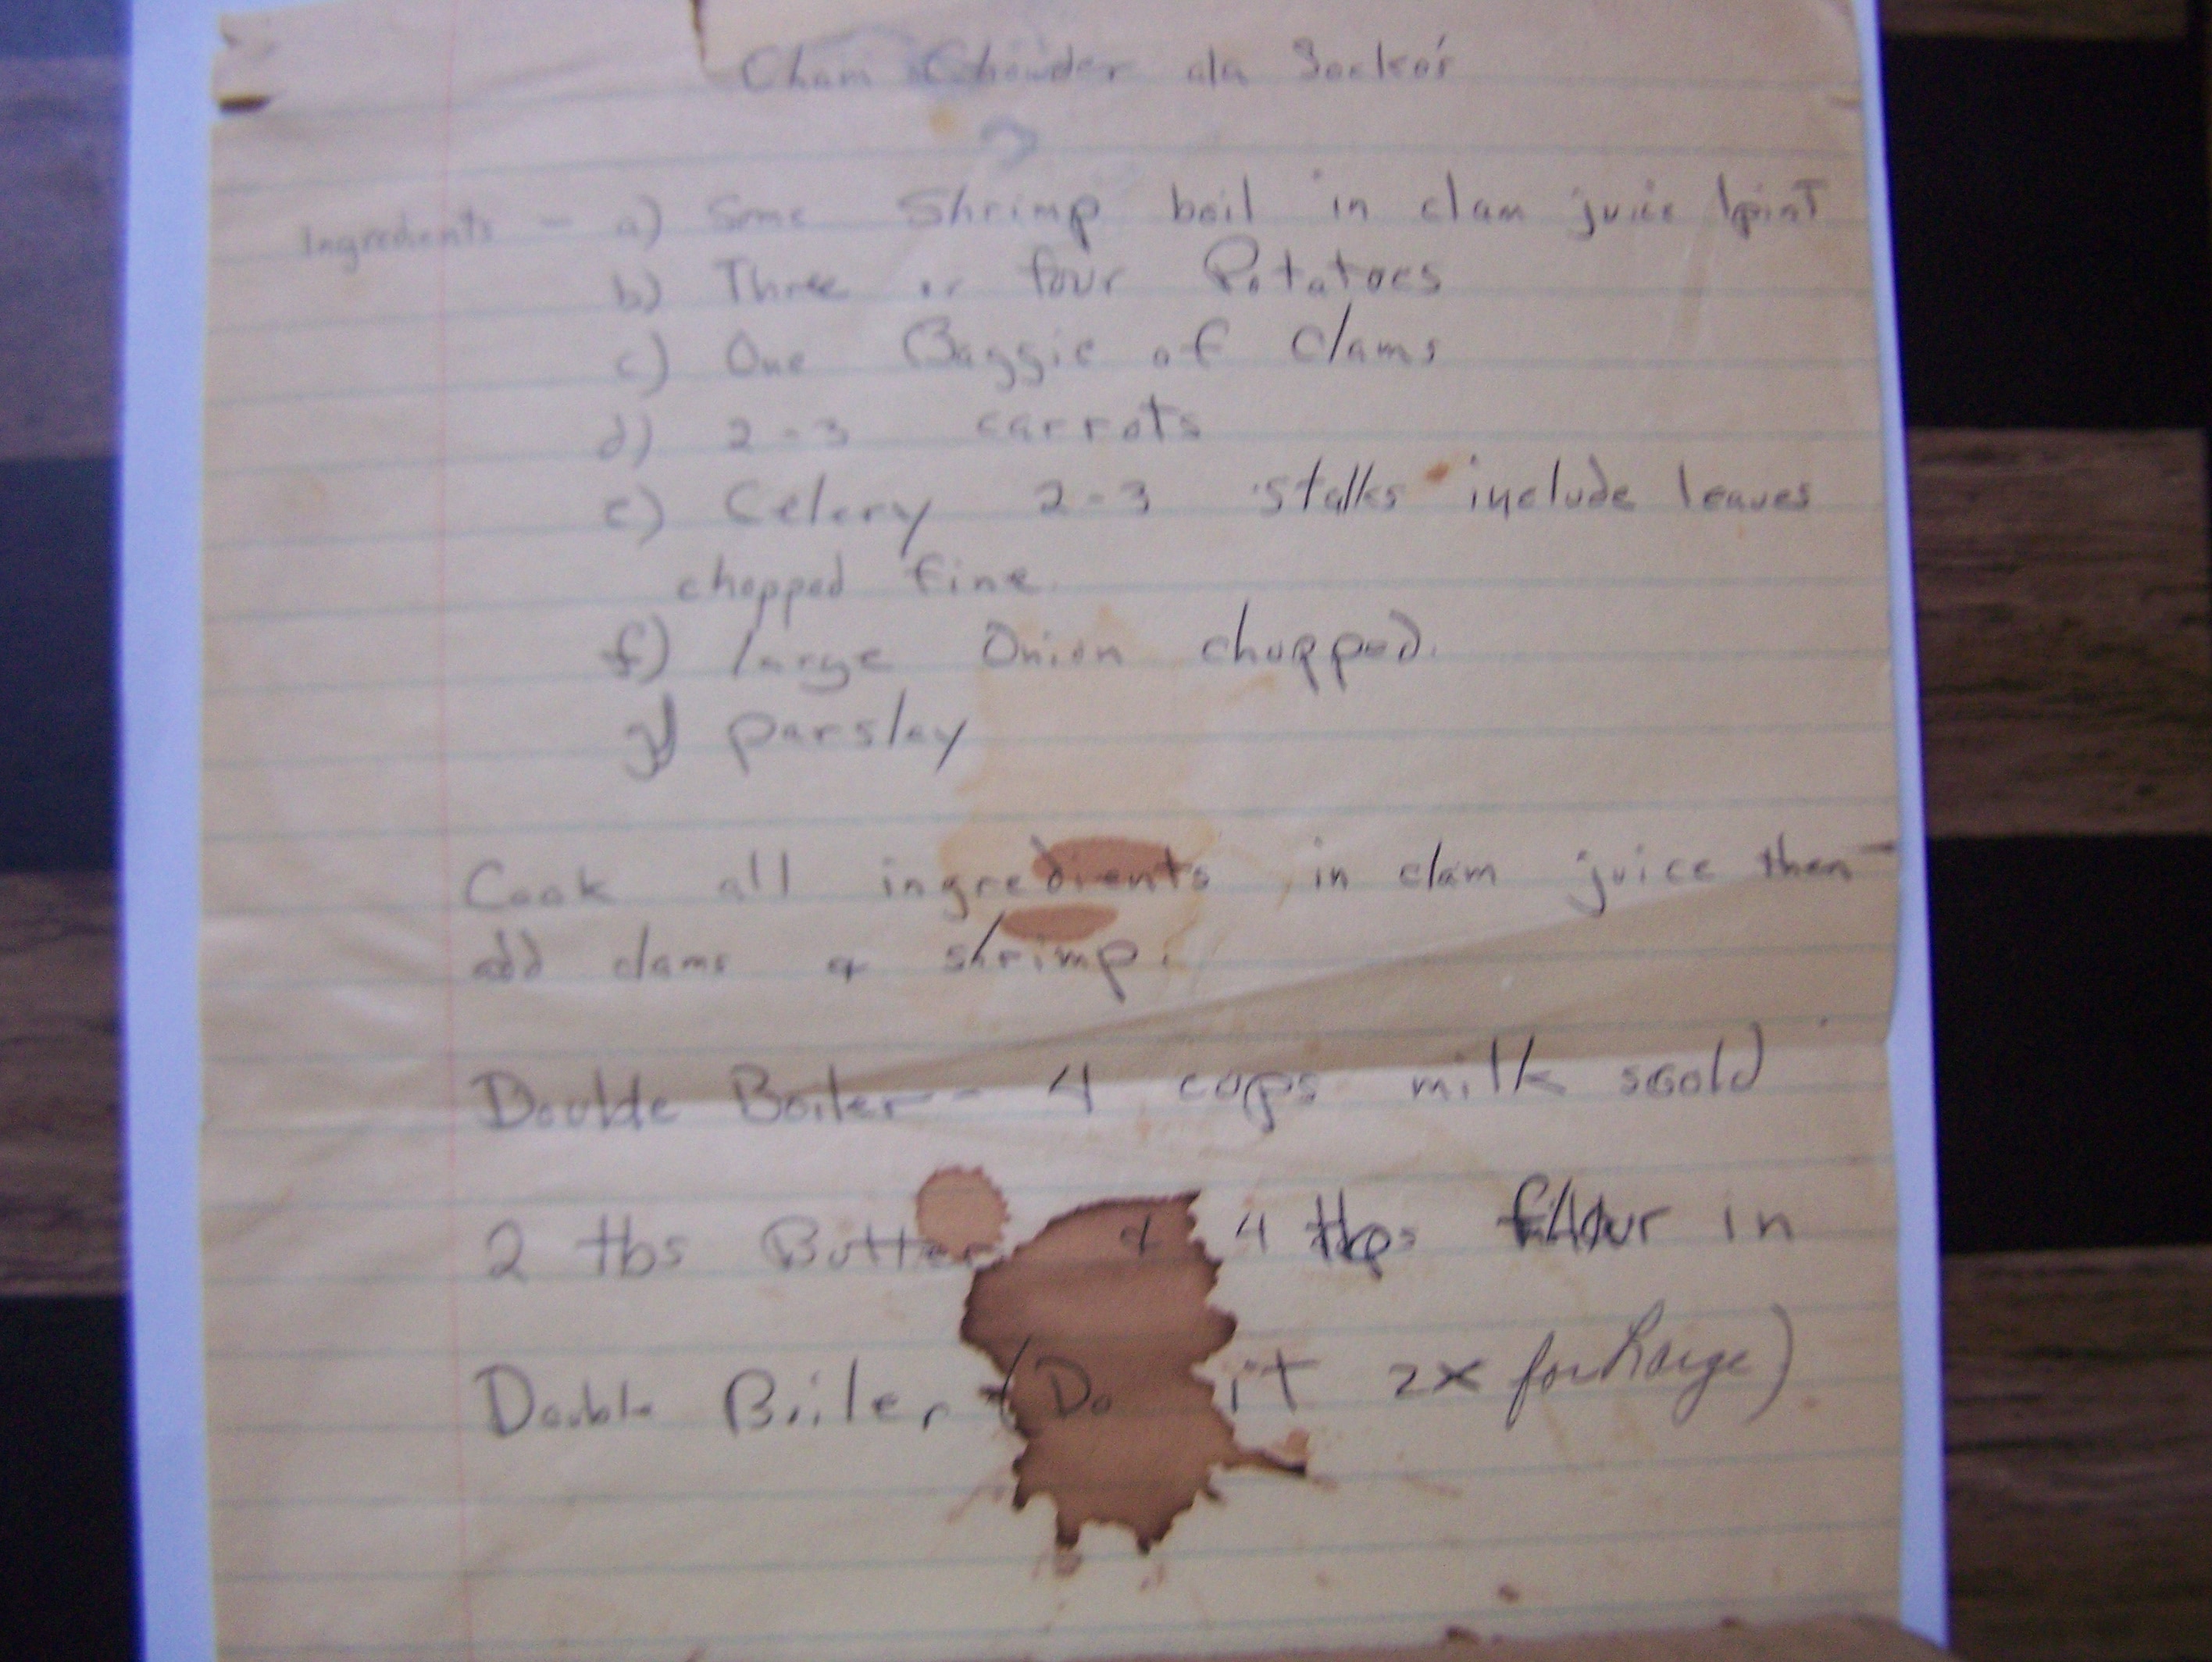 Cham Chowder ala
Ingredients - a) Some Shrimp boil in clam juice 1 pint
b) Three or four Potatoes
c) One Baggie of Clams
d) 2-3 carrots
e) Celery 2-3 stalks include leaves
chopped fine
f) large Onion chopped.
g) parsley
Cook all ingredients in clam juice then
add clams & shrimp.
Double Boiler - 4 cups milk scald
2 tbs Butter & 4 tbps flour in
Double Boiler (Do it 2x for Large)